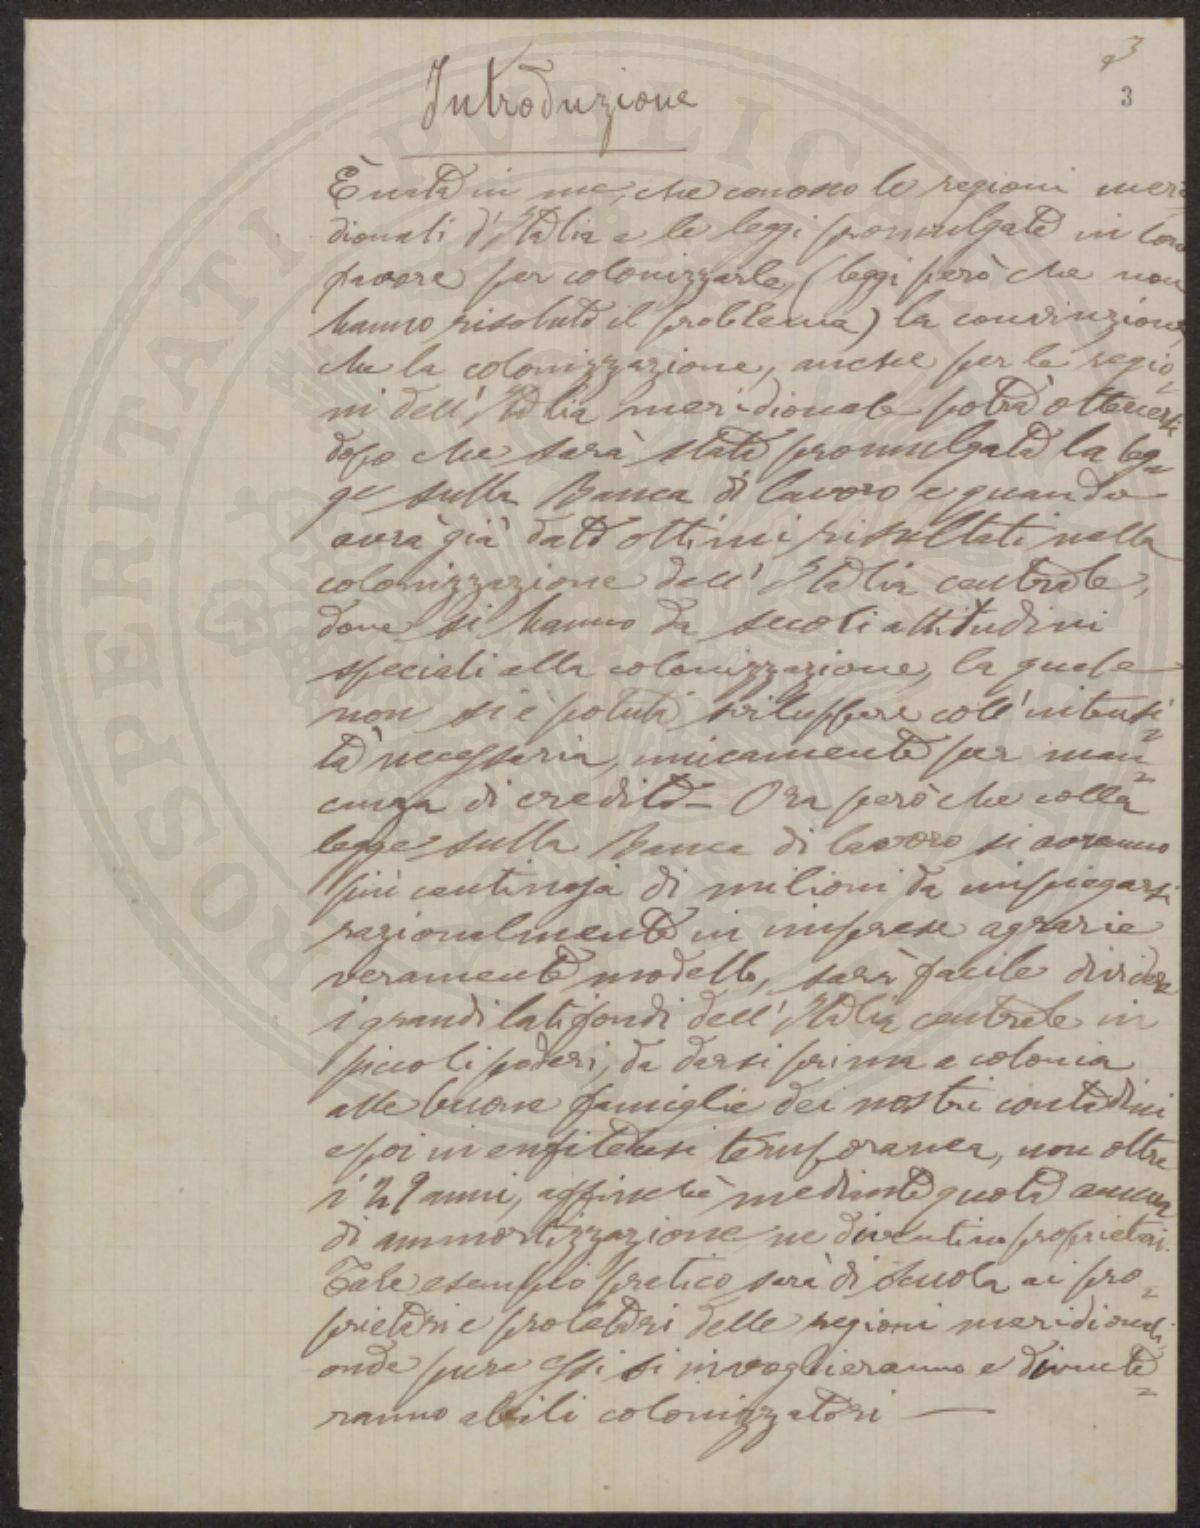 3
3
Introduzione
È nata in me, che conosco le regioni meri
dionali d'Italia e le leggi promulgate in loro
favore per colonizzarle, (leggi però che non
hanno risoluto il problema) la convinzione,
che la colonizzazione, anche per le regio=
ni dell'Italia meridionale potrà ottenersi
dopo che sarà stata promulgata la leg=
ge sulla Banca di lavoro e quando
avrà già dato ottimi risultati nella
colonizzazione dell'Italia centrale,
dove si hanno da secoli attitudini
speciali alla colonizzazione, la quale
non si è potuta sviluppare coll'intensi=
tà necessaria, unicamente per man=
canza di credito — Ora però che colla
legge sulla Banca di lavoro si avranno
più centinaja di milioni da impiegarsi
razionalmente in imprese agrarie
veramente modello, sarà facile dividere
i grandi latifondi dell'Italia centrale in
piccoli poderi, da darsi prima a colonia
alle buone famiglie dei nostri contadini
e poi in enfiteusi temporanea, non oltre
i 29 anni, affinchè mediante quota annua
di ammortizzazione ne diventino proprietari.
Tale esempio pratico sarà di scuola ai pro=
prietari e proletari delle regioni meridionali,
onde pure essi si invoglieranno e divente=
ranno abili colonizzatori —
PROSPERITATI PUBLICAE